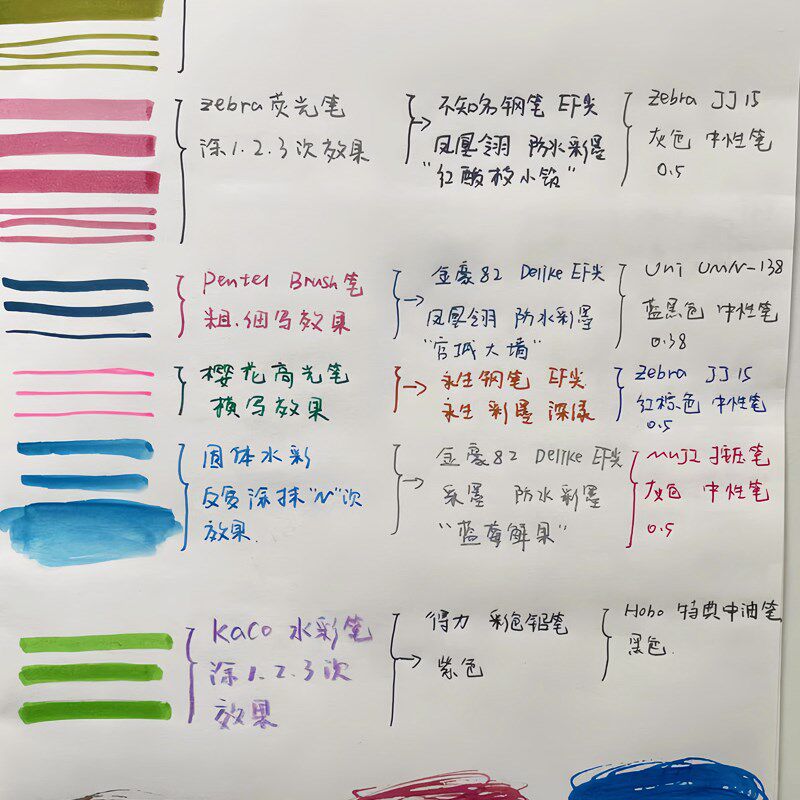 zebra 荧光笔
涂1.2.3次效果
不知名钢笔 EF尖
凤凰翎 防水彩墨
"红酸枝小铅"
zebra JJ15
灰色 中性笔
0.5
Pentel Brush笔
粗.细写效果
金豪82 Delike EF尖
凤凰翎 防水彩墨
"宫城大墙"
Uni UMN-138
蓝黑色 中性笔
0.38
樱花高光笔
横写效果
永生钢笔 EF尖
永生 彩墨 深绿
zebra JJ15
红棕色 中性笔
0.5
固体水彩
反复涂抹"N"次
效果.
金豪82 Delike EF尖
采墨 防水彩墨
"蓝莓解果"
MUJI 按压笔
灰色 中性笔
0.5
Kaco 水彩笔
涂1.2.3次
效果
得力 彩色铅笔
紫色
Hobo 特典中油笔
黑色.